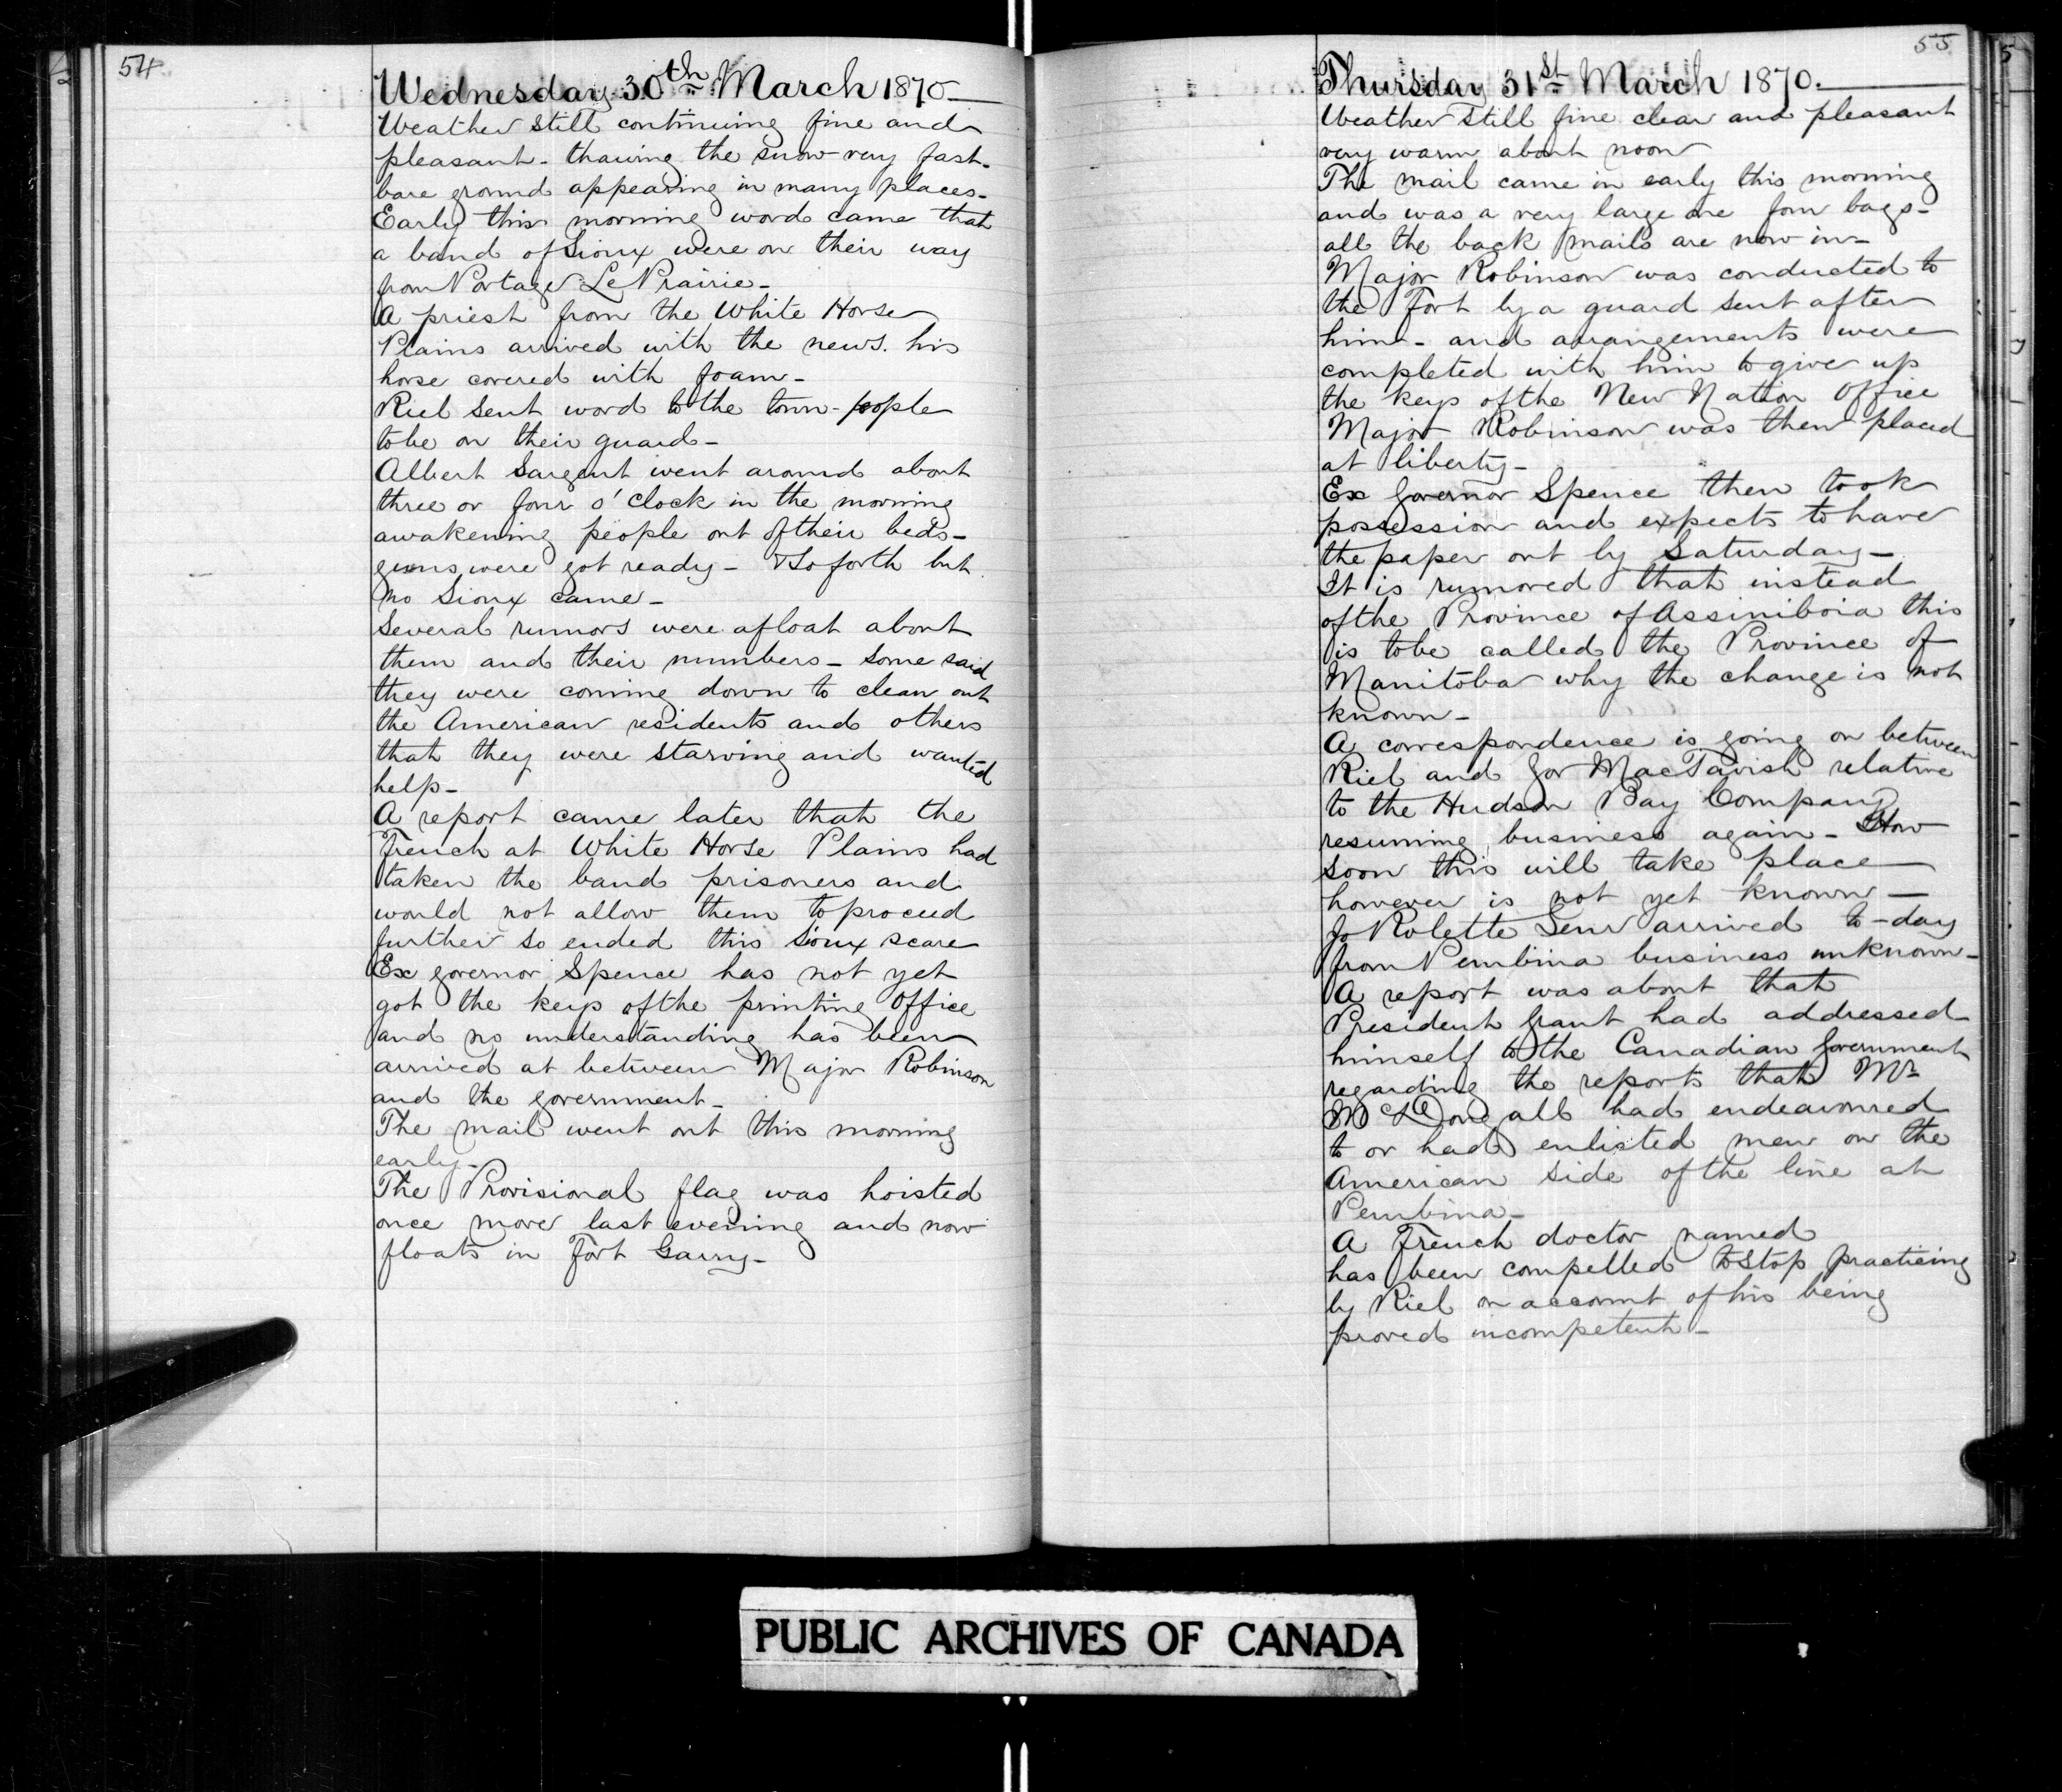 54
Wednesday 30th March 1870
Weather still continuing fine and
pleasant - thawing the snow very fast -
bare ground appearing in many places -
Early this morning word came that
a band of Sioux were on their way
from Portage Le Prairie -
A priest from the White Horse
Plains arrived with the news. his
horse covered with foam -
Riel sent word to the town-people
to be on their guard -
Albert Sargent went around about
three or four o'clock in the morning
awakening people out of their beds -
guns were got ready - & so forth but
no Sioux came -
Several rumors were afloat about
them and their numbers - some said
they were coming down to clean out
the American residents and others
that they were starving and wanted
help -
A report came later that the
French at White Horse Plains had
taken the band prisoners and
would not allow them to proceed
further so ended this Sioux scare
Ex governor Spence has not yet
got the keys of the printing office
and no understanding has been
arrived at between Major Robinson
and the government -
The mail went out this morning
early -
The Provisional flag was hoisted
once more last evening and now
floats in Fort Garry -
55
Thursday 31st March 1870.
Weather still fine clear and pleasant
very warm about noon
The mail came in early this morning
and was a very large one four bags -
all the back mails are now in -
Major Robinson was conducted to
the Fort by a guard sent after
him - and arrangements were
completed with him to give up
the keys of the New Nation Office
Major Robinson was then placed
at liberty -
Ex Governor Spence then took
possession and expects to have
the paper out by Saturday -
It is rumored that instead
of the Province of Assiniboia this
is to be called the Province of
Manitoba why the change is not
known -
A correspondence is going on between
Riel and Gov MacTavish relative
to the Hudson Bay Company
resuming business again - How
soon this will take place
however is not yet known -
Jo Rolette Senr arrived to-day
from Pembina business unknown -
A report was about that
President Grant had addressed
himself to the Canadian Government
regarding the reports that Mr
McDougall had endeavoured
to or had enlisted men on the
American side of the line at
Pembina -
A French doctor named
has been compelled to stop practicing
by Riel on account of his being
proved incompetent -
PUBLIC ARCHIVES OF CANADA